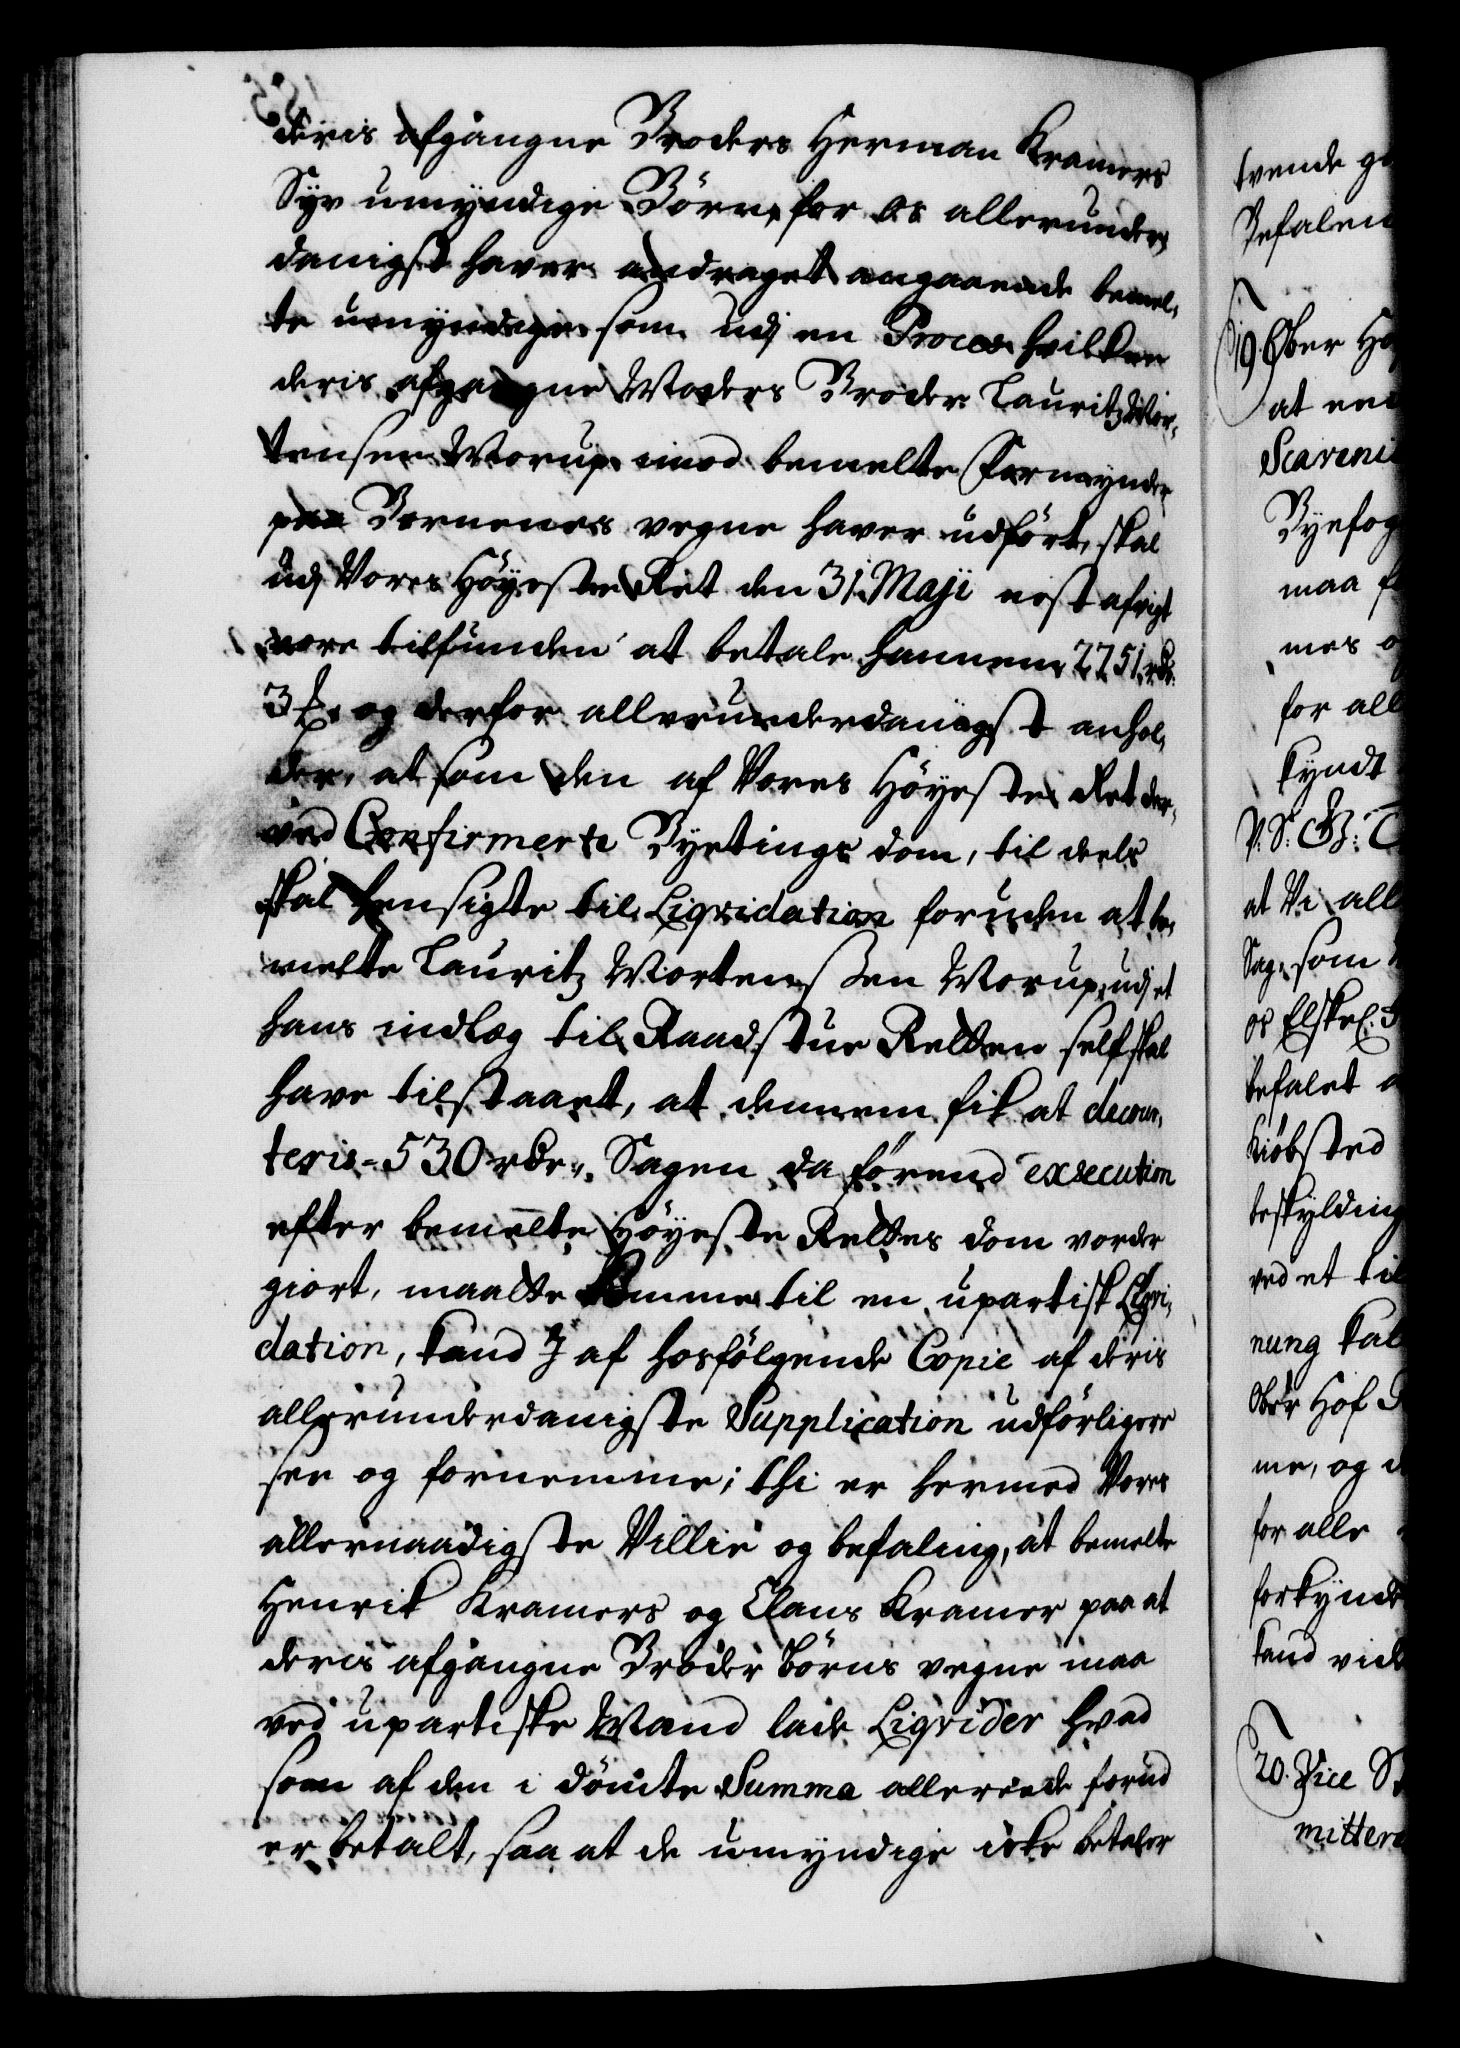 deris afgangne Broders Herman Kramers
Syv umyndige Börn, for os allerunder,
danigst haver andraget angaaende bemel,
te umyndige som udj en Proces hvilken
deris afgangne Moders Broder Lauritz Mor,
tensen Morup imod bemelte Formynder
paa Börnenes vegne haver udført, skal
udj Vores Höyeste Ret den 31. Maji nest afvigt
være tilfunden at betale hannem 2251 rdr.
3 ß. og derfor allerunderdanigst anhol,
der, at som den af Vores Höyeste Ret der,
ved Confirmerte Byetings dom, til deels
skal hensigte til Liqvidation foruden at be,
melte Lauritz Mortensen Morup, udj et
hans indlæg til Raadstue Retten self skal
have tilstaaet, at dennem fik at decour,
teris 530 rdr. Sagen da førend execution
efter bemelte Höyeste Rettes dom vorder
giort, maatte komme til en upartisk Liqvi,
dation, kand I af hosfölgende Copie af deris
allerunderdanigste Supplication udförligere
see og fornemme; thi er hermed Vores
allernaadigste Villie og befaling, at bemelte
Henrik Kramers og Claus Kramer paa
deris afgangne Broder börns vegne maa
ved upartiske Mænd lade Liqvider hvad
som af den i dömte Summa allereede forud
er betalt, saa at de umyndige icke betaler
tvende
Befalen
19. Ober
at
Scaveni
Byefog
maa
mes
for all
kyndt
V. S. G: T
at Vi all
Sag, som
os Elskel:
befalet
kiöbsted
beskylding
ved et til
nung kal
Ober Hof
me, og
for alle
forkyndt
kand vide
20. Vice
mittere